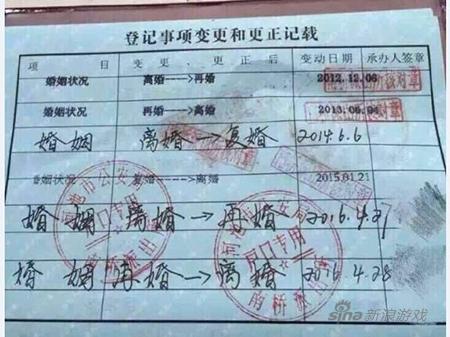 登记事项变更和更正记载
项 目 变、更 正 后 变动日期 承办人签章
婚姻状况 离婚---->再婚 2012.12.06
婚姻状况 再婚---->离婚 2013.06.04
婚姻 离婚→复婚 2014.6.6
婚姻状况 复婚---->离婚 2015.01.21
婚姻 离婚→再婚 2016.4.27
婚姻 再婚→离婚 2016.4.28
市公安局
户口专用
桥派出所
市公安局
户口专用
桥派出所
sina新浪游戏